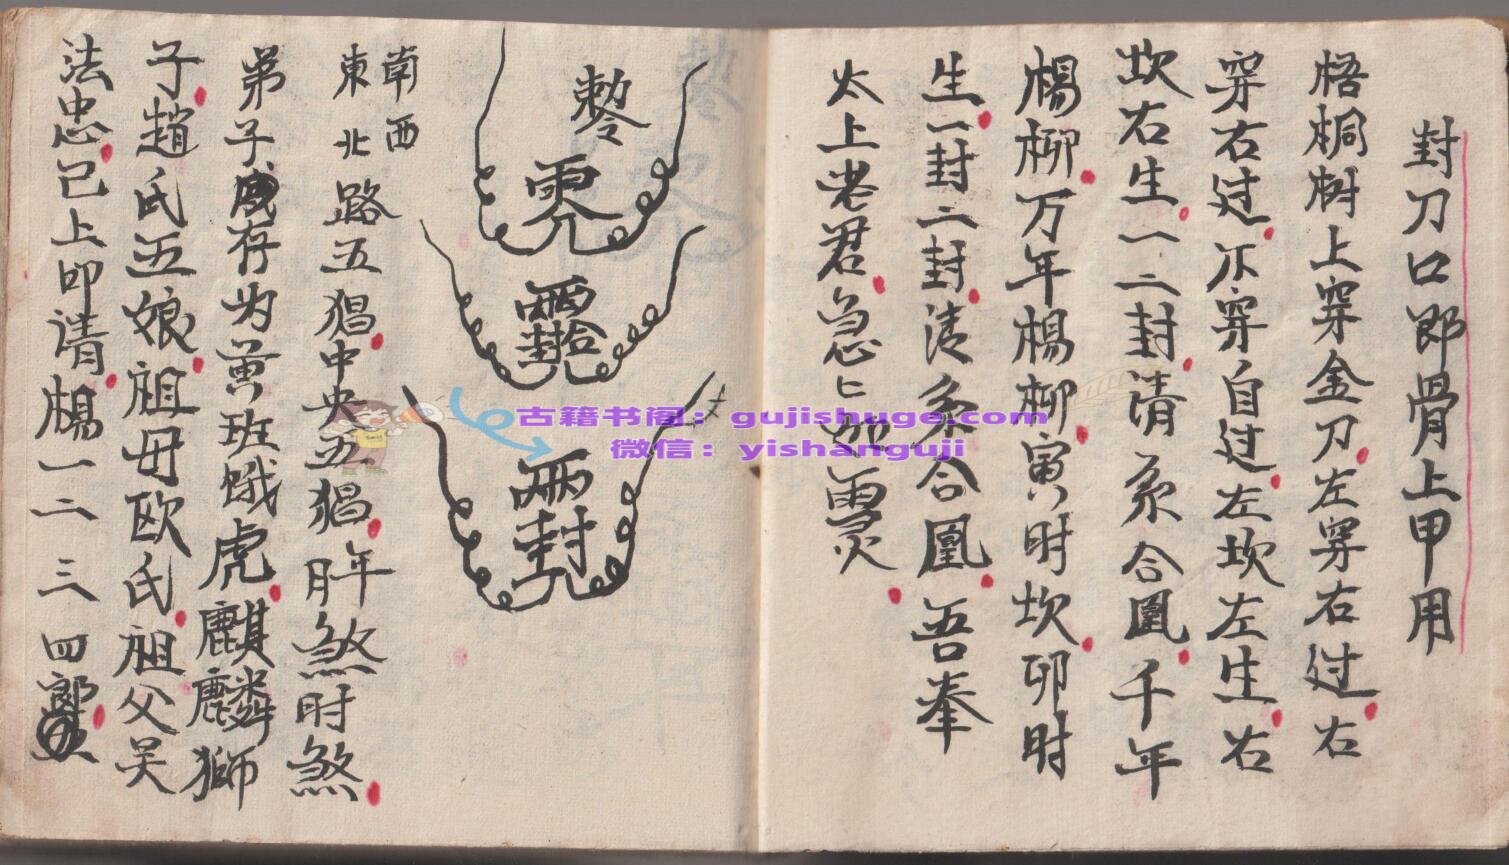 封刀口郎骨上甲用
梧桐树上穿金刀左穿右过右
穿右过不穿自过左坎左生右
坎右生一二封清系合凰千年
楊柳万年楊柳寅时坎卯时
生一封二封清系合凰吾奉
太上老君急匕如
敕令
封
南西
東北路五猖中央五猖年月煞时煞
弟子存为黄班饿虎麒麟獅
子趙氏五娘祖母欧氏祖父吴
法忠已上叩请楊一二三四郎
古籍书阁：gujishuge.com
微信：yishanguji